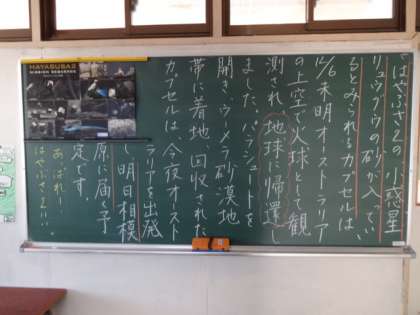 HAYABUSA2
「はやぶさ2の小惑星
リュウグウの砂が入ってい
るとみられるカプセルは、
12/6未明オーストラリア
の上空で火球として観
測され、地球に帰還し
ました。パラシュートを
開き、ウメラ砂漠地
帯に着地、回収された
カプセルは、今夜オースト
ラリアを出発
明日相模
原に届く予
定です。
あっぱれ!
はやぶさ2!!